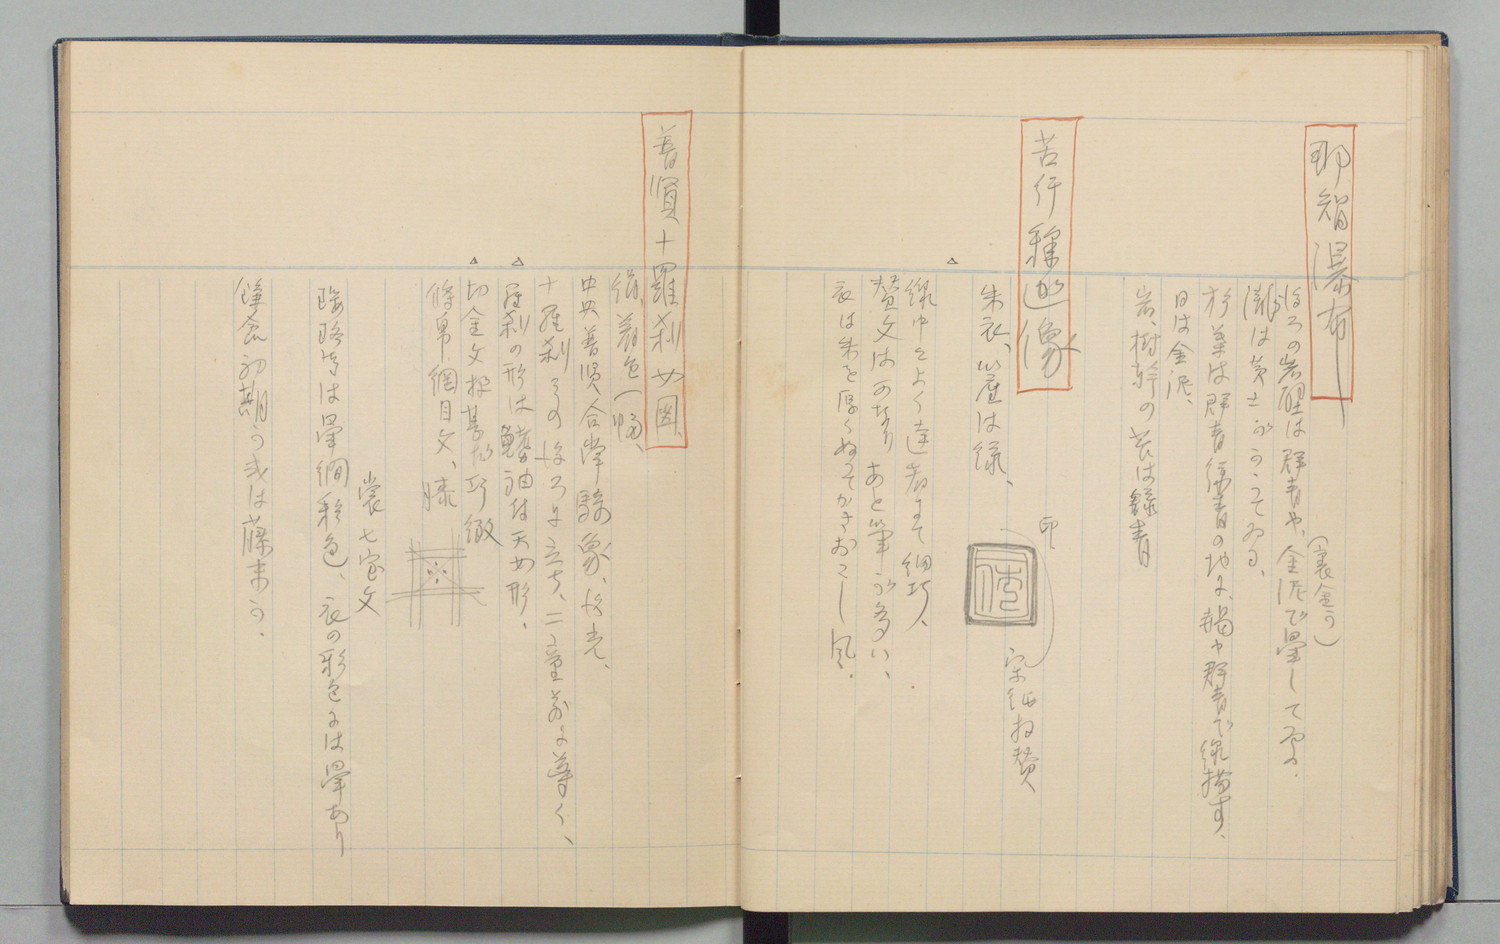 那智瀑布
(裏金か)
後ろの岩壁は群青や、金泥で暈してゐる.
瀧は黄土
杉葉は群青緑青の地に、墨や群青で線描す、
日は金泥、
岩、樹幹の苔は緑青
苦行釋迦像
朱衣、座は緑、
印
宋紙
賛
線やはよく達者にて細巧、
賛文は可なりあと筆が多い、
衣は朱を厚くぬつてかきおこし風.
普賢十羅刹女図
絹着色一幅、
中央普賢合掌騎象、後光、
十羅刹その後ろに立ち、二童前に導く、
羅刹の形は鰭袖付天女形、
切金文様甚だ巧緻
條帛、網目文、膝
裳七宝文
瓔珞等は暈繝彩色、衣の彩色には暈あり
鎌倉初期か或は藤末か.